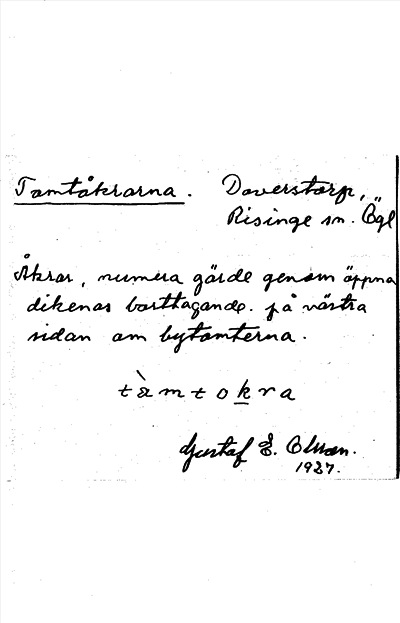 Tomtåkrarna. Doverstorp,
Risinge sn. Ögl
Åkrar, numera gärde genom öppna
dikenas borttagande. på västra
sidan om bytomterna.
tàmtokra
Gustaf E. Olsson.
1927.